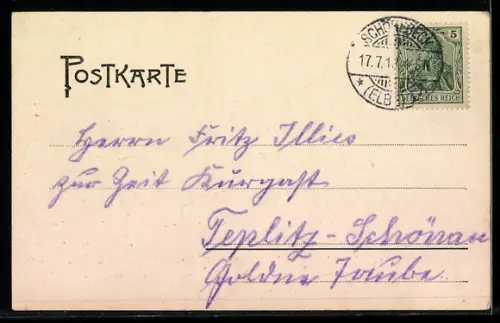 POSTKARTE
SCHÖNEBECK
17.7.1
* (ELBE)
5
DEUTSCHES REICH
Herrn Fritz Illies
zur Zeit Kurgast
Teplitz-Schönau
Goldne Taube.